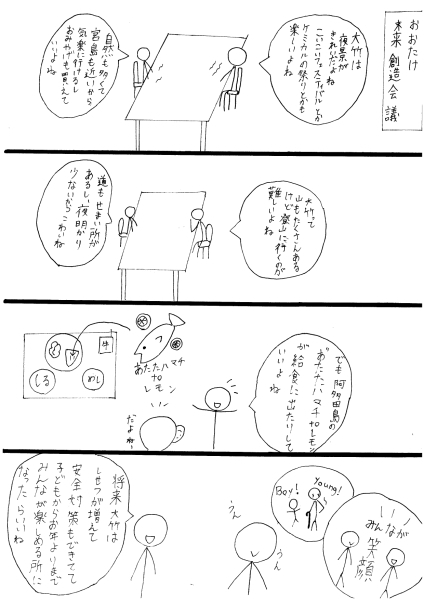 おおたけ
未来創造会議
大竹は
夜景が
きれいだよね
こいこいフェスティバルとか
ケミカルの祭りとかも
楽しいよね
自然も多くて
宮島も近いから
気楽に行けるし
おみやげも買えて
いいよね
大竹って
山もたくさんある
けど登山に行くのが
難しいよね
道もせまい所が
あるし夜明かり
少ないからこわいね
でも阿多田島の
あたたハマチtoレモン
が給食に出たりして
いいよね
あたたハマチ
to
レモン
牛
しる
めし
だよねー
将来大竹は
しせつが増えて
安全対策もできてて
子どもからお年よりまで
みんなが楽しめる所に
なったらいいね
うん
うん
Boy!
Young!
みんなが
笑顔